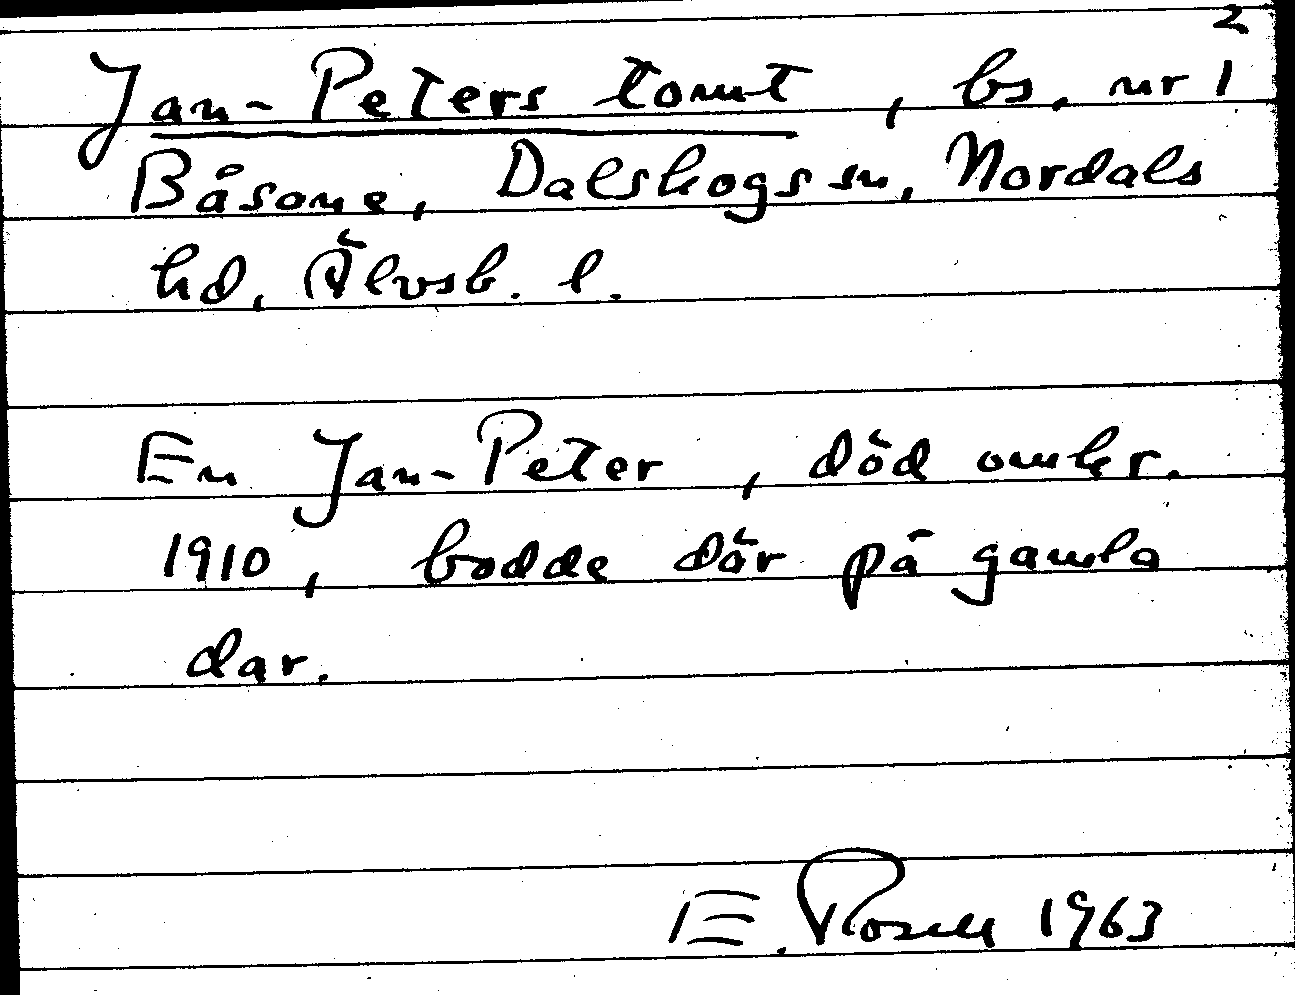 2
Jan-Peters tomt, bs. nr 1
Båsane, Dalskogs sn, Nordals
hd, Älvsb. l.
En Jan-Peter, död omkr.
1910, bodde där på gamla
dar.
E. Rosell 1963